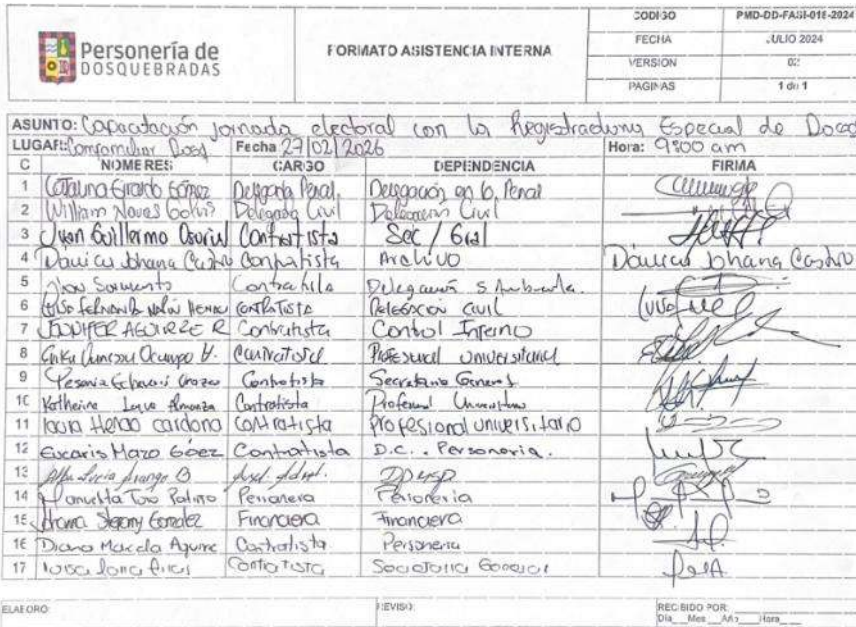 Personería de
DOSQUEBRADAS
FORMATO ASISTENCIA INTERNA
CODIGO PMD-DD-FASI-018-2024
FECHA JULIO 2024
VERSION 02
PAGINAS 1 de 1
ASUNTO: Capacitación jornada electoral con la Registraduria Especial de Dosq
LUGAR: Comfamiliar Dosq Fecha 27/02/2026 Hora: 9:00 am
NOMBRES CARGO DEPENDENCIA FIRMA
1 Catalina Giraldo Gómez Delegada Penal Delegación en lo Penal
2 William Delegado Civil Delegación Civil
3 Juan Guillermo Osorio Contratista Sec / Gral
4 Johana Castro Contratista Archivo Johana Castro
5 Sarmiento Contratista Delegación
6 Luisa Fernanda Contratista Delegación Civil Luisa
7 JENNIFER AGUIRRE R Contratista Control Interno
8 Erika Ocampo H. Contratista Profesional Universitaria
9 Yesenia Echeverri Orozco Contratista Secretaria General
10 Katherine Almanza Contratista Profesional
11 laura Henao cardona Contratista Profesional universitario
12 Eucaris Mazo Góez Contratista D.C. Personeria.
13 Alba Lucia Arango B
14 Manuelita Toro Patiño Personera Personeria
15 Stefany González Financiera Financiera
16 Diana Marcela Aguirre Contratista Personeria
17 Luisa Contratista Secretaria General
ELABORO: REVISO: RECIBIDO POR:
Dia Mes Año Hora